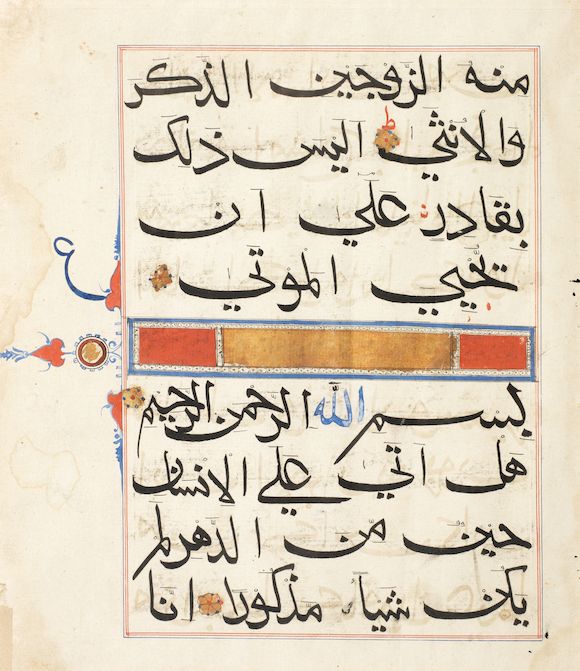 منه الزوجين الذكر
والانثى ط اليس ذلك
بقادر على ان
يحيي الموتى
ع
بسم الله الرحمن الرحيم
هل اتى على الانسان
حين من الدهر لم
يكن شيا مذكورا انا